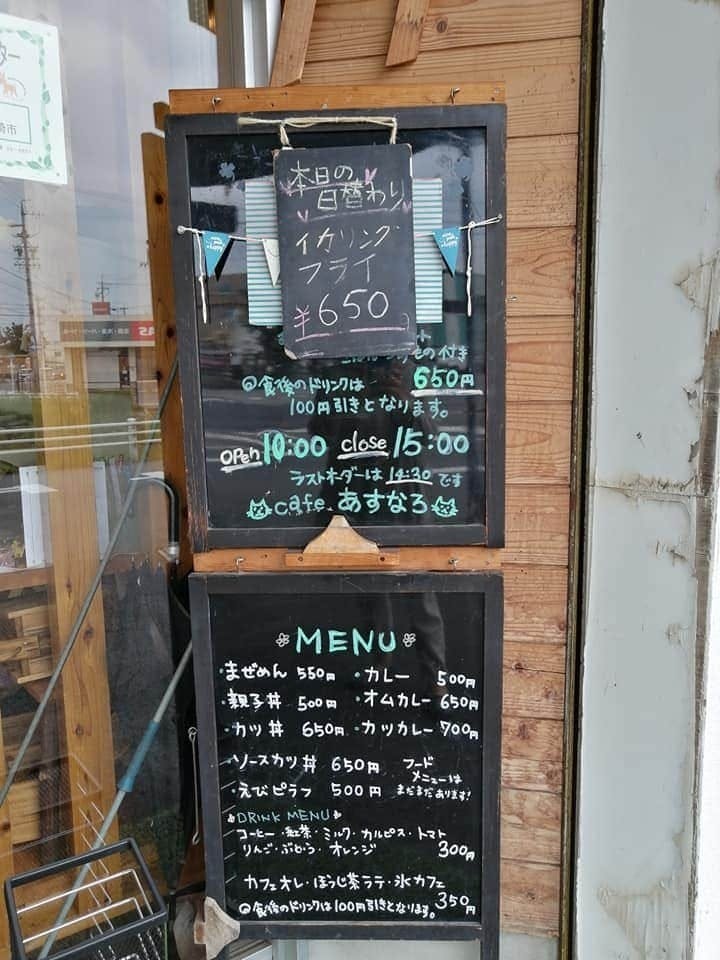 ター
崎市
本日の
日替わり
イカリング
フライ
¥650
の付き
650円
@食後のドリンクは
100円引きとなります。
open 10:00 close 15:00
ラストオーダーは 14:30 です
cafe あすなろ
MENU
・まぜめん 550円
・親子丼 500円
・カツ丼 650円
・ソースカツ丼 650円
・えびピラフ 500円
・カレー 500円
・オムカレー 650円
・カツカレー 700円
フード
メニューは
まだまだあります!
DRINK MENU
コーヒー・紅茶・ミルク・カルピス・トマト
りんご・ぶどう・オレンジ 300円
カフェオレ・ほうじ茶ラテ・氷カフェ 350円
@食後のドリンクは100円引きとなります。